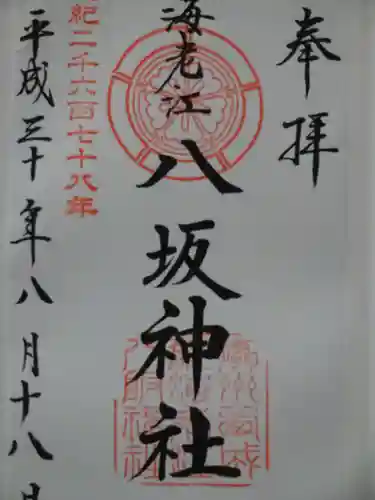 奉拝
海老江
八坂神社
紀二千六百七十八年
平成三十年八月十八日